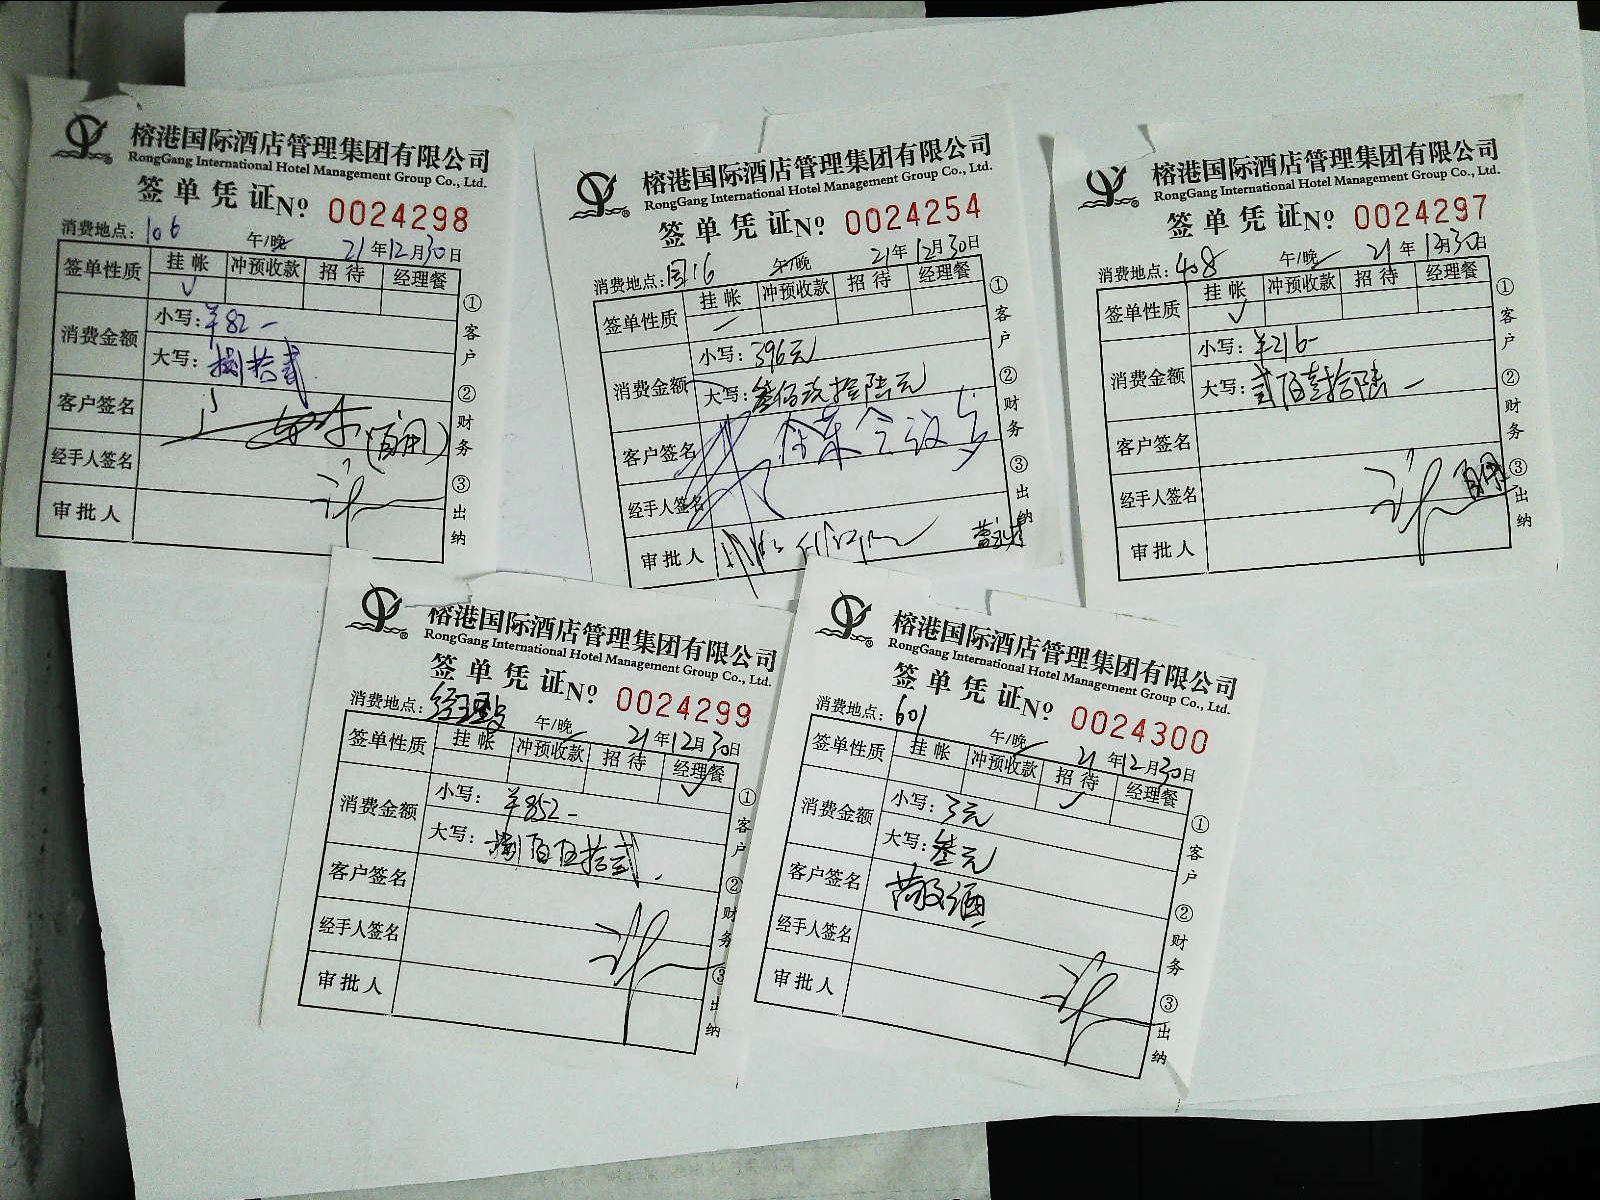 榕港国际酒店管理集团有限公司
RongGang International Hotel Management Group Co., Ltd.
签单凭证 Nº 0024298
消费地点: 106 午/晚 21年12月30日
签单性质 挂帐 冲预收款 招待 经理餐
✓
消费金额 小写: ¥82-
大写: 捌拾贰
客户签名
经手人签名
审批人
①客户 ②财务 ③出纳
榕港国际酒店管理集团有限公司
RongGang International Hotel Management Group Co., Ltd.
签单凭证 Nº 0024254
消费地点: 16 午/晚 21年12月30日
签单性质 挂帐 冲预收款 招待 经理餐
消费金额 小写: 396元
大写: 叁佰玖拾陆元
客户签名
经手人签名
审批人
①客户 ②财务 ③出纳
榕港国际酒店管理集团有限公司
RongGang International Hotel Management Group Co., Ltd.
签单凭证 Nº 0024297
消费地点: 408 午/晚 21年12月30日
签单性质 挂帐 冲预收款 招待 经理餐
✓
消费金额 小写: ¥216-
大写: 贰佰壹拾陆-
客户签名
经手人签名
审批人
①客户 ②财务 ③出纳
榕港国际酒店管理集团有限公司
RongGang International Hotel Management Group Co., Ltd.
签单凭证 Nº 0024299
消费地点: 经理 午/晚 21年12月30日
签单性质 挂帐 冲预收款 招待 经理餐
✓
消费金额 小写: ¥852-
大写: 捌佰伍拾贰
客户签名
经手人签名
审批人
①客户 ②财务 ③出纳
榕港国际酒店管理集团有限公司
RongGang International Hotel Management Group Co., Ltd.
签单凭证 Nº 0024300
消费地点: 601 午/晚 21年12月30日
签单性质 挂帐 冲预收款 招待 经理餐
✓
消费金额 小写: 3元
大写: 叁元
客户签名
经手人签名
审批人
①客户 ②财务 ③出纳